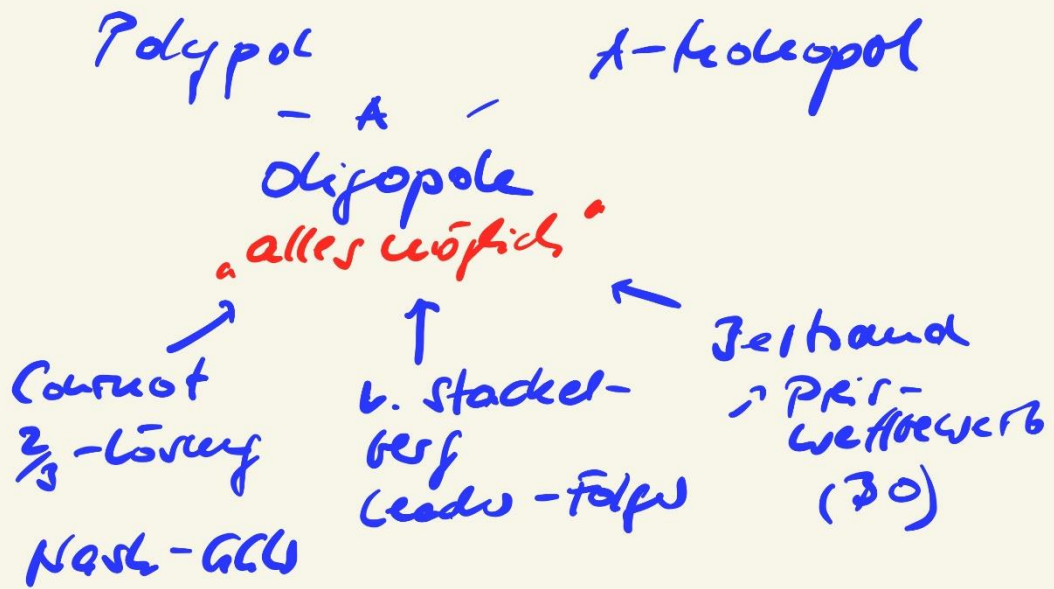 Polypol
A-Monopol
- A -
Oligopole
„alles möglich"
Cournot
2/3-Lösung
Nash-GGW
v. Stackel-
berg
Leader-Folger
Bertrand
Preis-
wettbewerb
(BO)